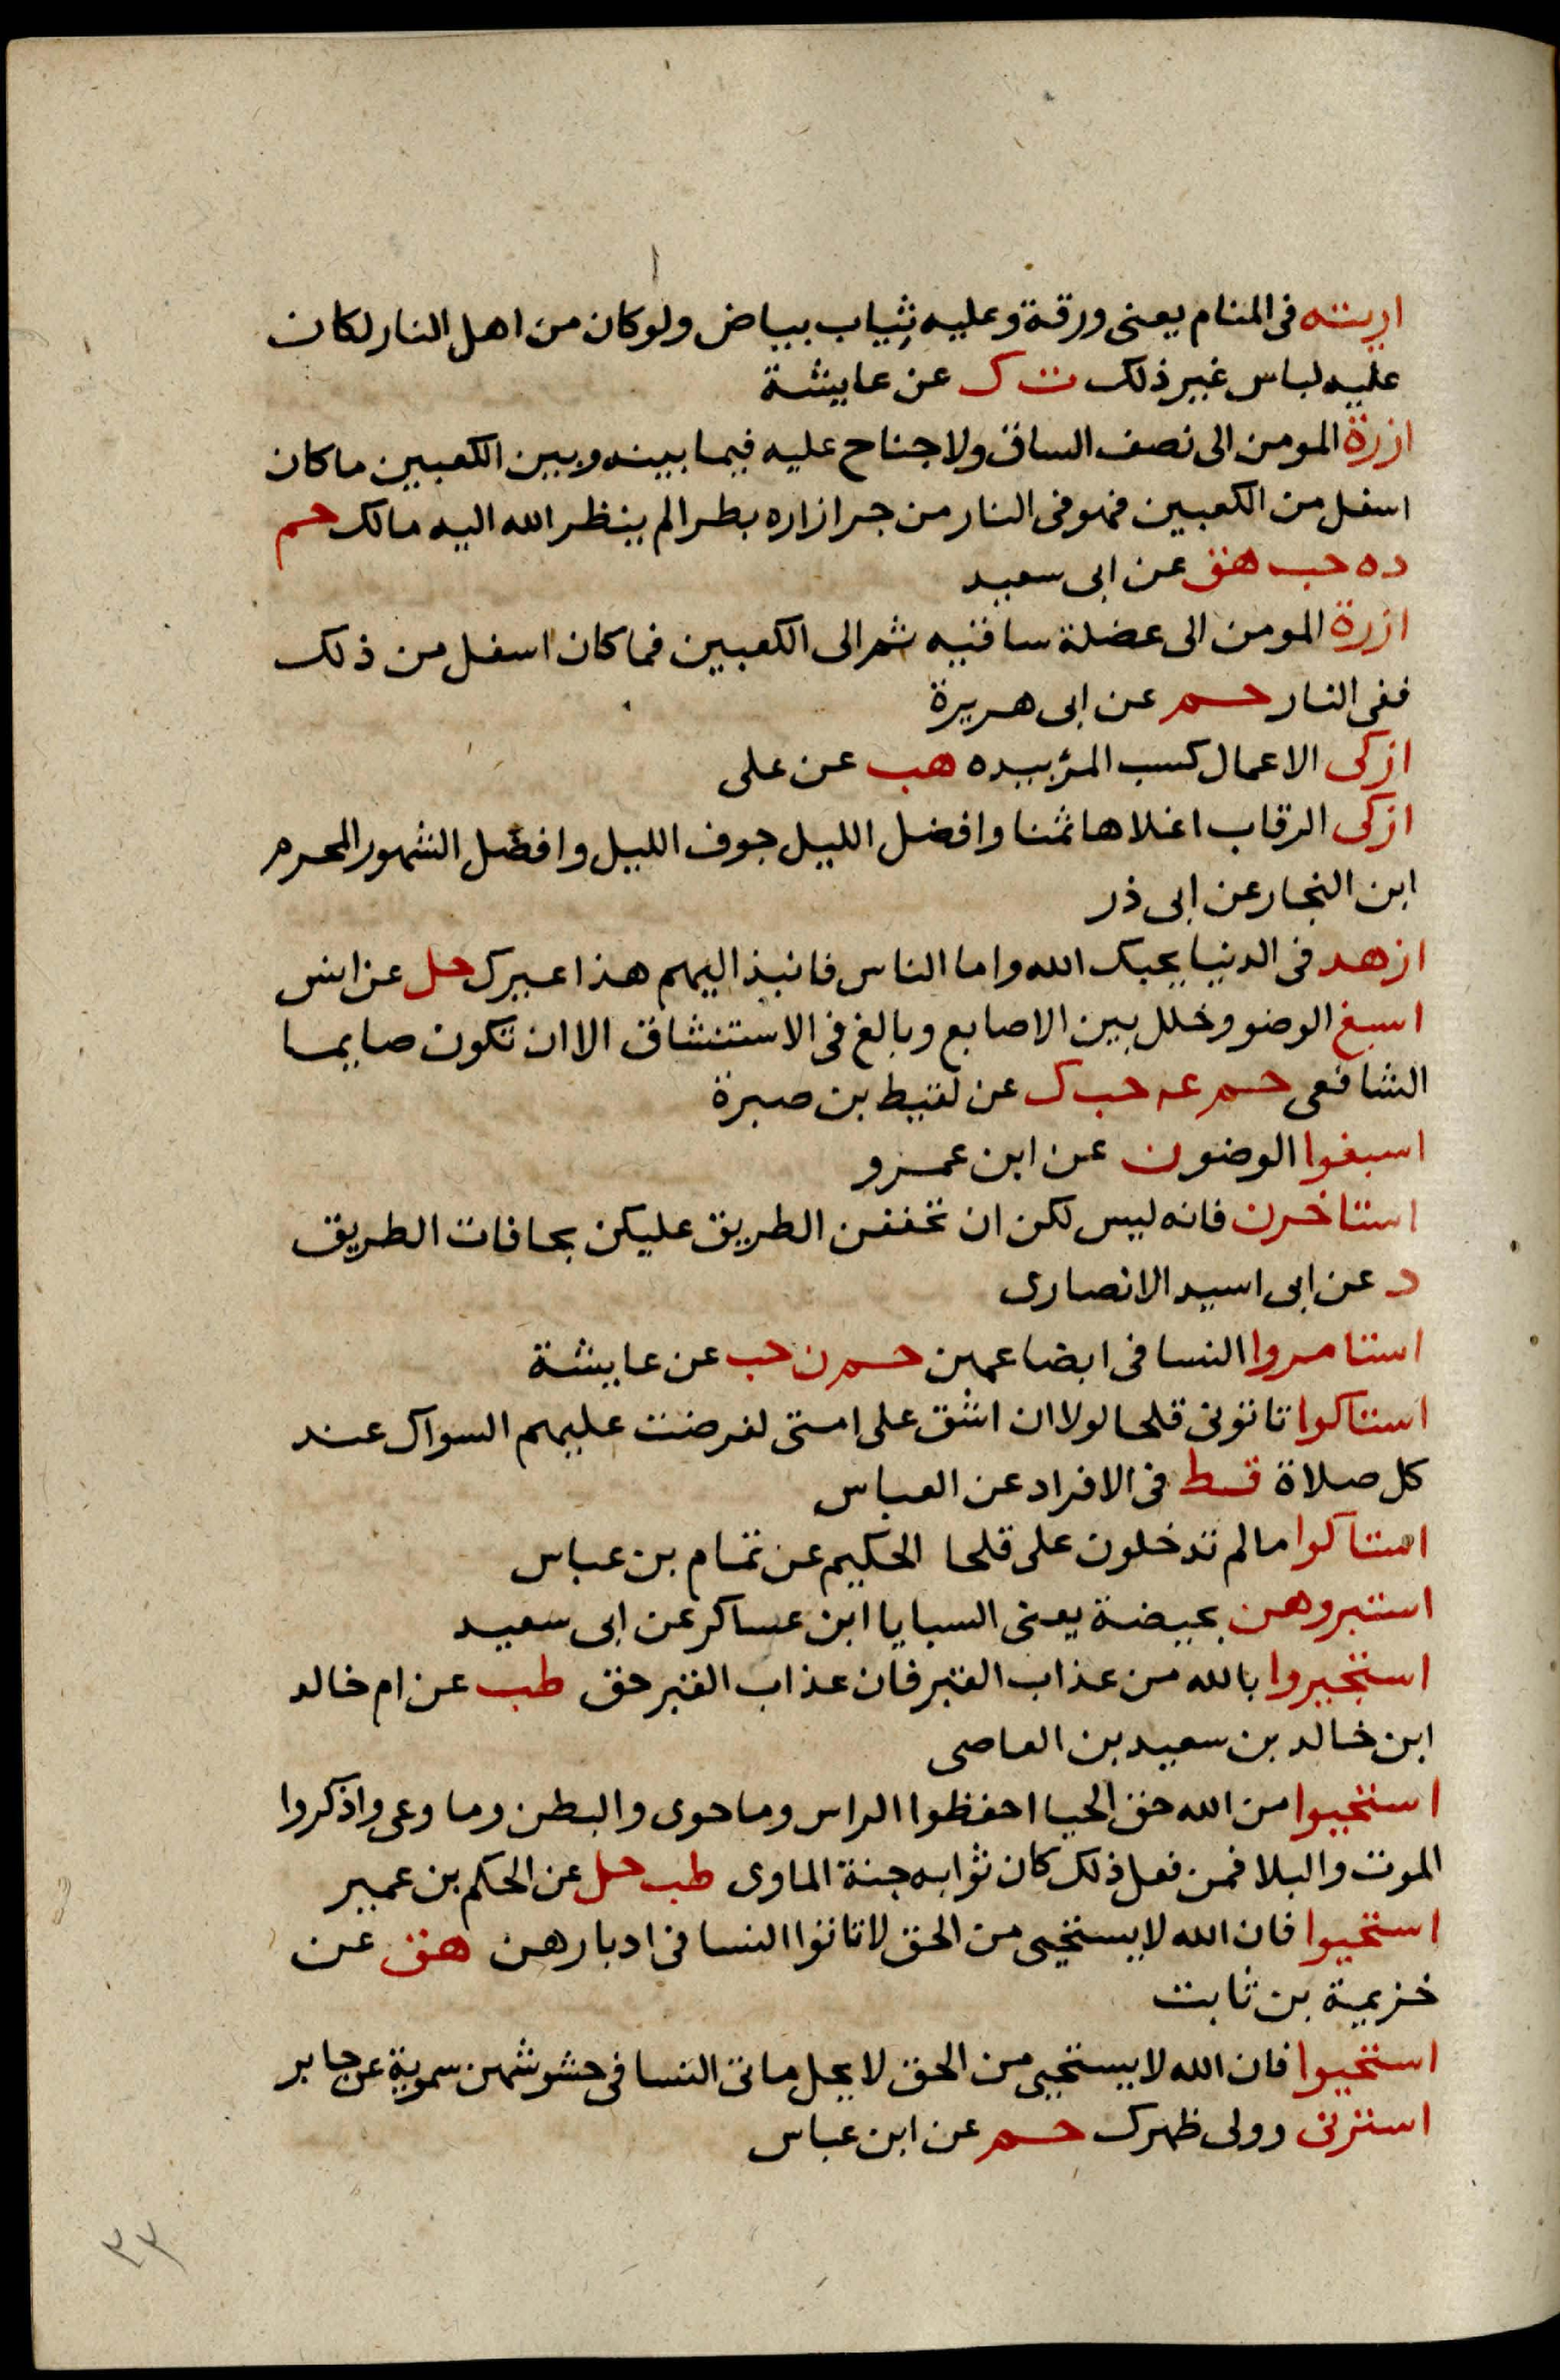 اريته فى المنام يعنى ورقة وعليه ثياب بياض ولو كان من اهل النار لكان
عليه لباس غير ذلك ت ك عن عايشة
ازرة المومن الى نصف الساق ولا جناح عليه فيما بينه وبين الكعبين ما كان
اسفل من الكعبين فهو فى النار من جر ازاره بطرا لم ينظر الله اليه مالك حم
د ه حب هق عن ابى سعيد
ازرة المومن الى عضلة ساقيه ثم الى الكعبين فما كان اسفل من ذلك
ففى النار حم عن ابى هريرة
ازكى الاعمال كسب المرء بيده هب عن على
ازكى الرقاب اغلاها ثمنا وافضل الليل جوف الليل وافضل الشهور المحرم
ابن النجار عن ابى ذر
ازهد فى الدنيا يحبك الله واما الناس فانبذ اليهم هذا حل عن انس
اسبغ الوضو وخلل بين الاصابع وبالغ فى الاستنشاق الا ان تكون صايما
الشافعى حم عه حب ك عن لقيط بن صبرة
اسبغوا الوضو ن عن ابن عمرو
استاخرن فانه ليس لكن ان تحققن الطريق عليكن بحافات الطريق
د عن ابى اسيد الانصارى
استامروا النسا فى ابضاعهن حم ن حب عن عايشة
استاكوا تاتونى قلحا لولا ان اشق على امتى لفرضت عليهم السواك عند
كل صلاة قط فى الافراد عن العباس
استاكوا مالم تدخلون على قلحا الحكيم عن تمام بن عباس
استبروهن بحيضة يعنى السبايا ابن عساكر عن ابى سعيد
استجيروا بالله من عذاب القبر فان عذاب القبر حق طب عن ام خالد
ابن خالد بن سعيد بن العاصى
استحيوا من الله حق الحيا احفظوا الراس وما حوى والبطن وما وعى واذكروا
الموت والبلا فمن فعل ذلك كان ثوابه جنة الماوى طب حل عن الحكم بن عمير
استحيوا فان الله لا يستحيى من الحق لا تاتوا النسا فى ادبارهن هق عن
خزيمة بن ثابت
استحيوا فان الله لا يستحيى من الحق لا يحل ماتى النسا فى حشوشهن سموية عن جابر
استرنى وولى ظهرك حم عن ابن عباس
٣٣